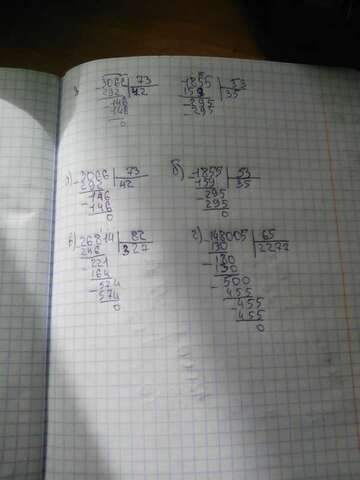 3066 73
292 42
146
146
0
1855 53
159 35
295
295
а) 3066 73
292 42
146
146
0
б) 1855 53
159 35
295
295
0
в) 26814 82
246 327
221
164
574
574
0
г) 148005 65
130 2272
180
130
500
455
455
455
0